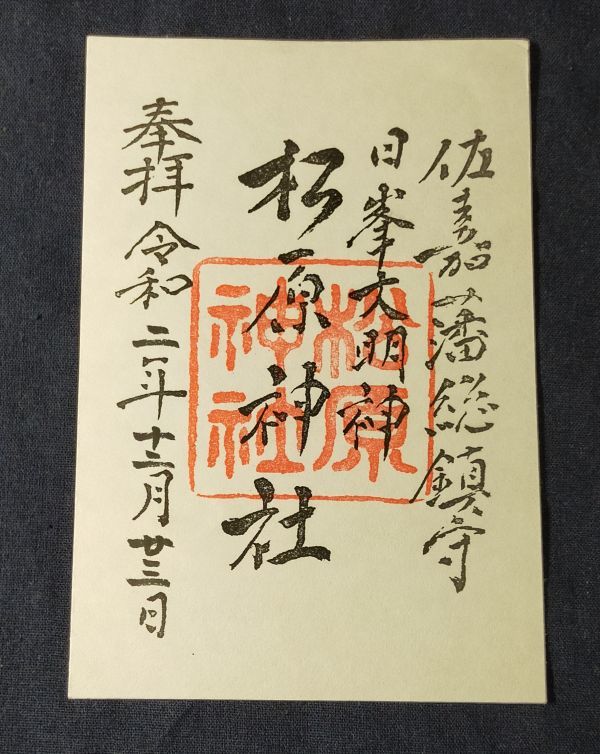 佐嘉藩総鎮守
日峯大明神
松原神社
松原
神社
奉拝 令和二年十二月廿三日